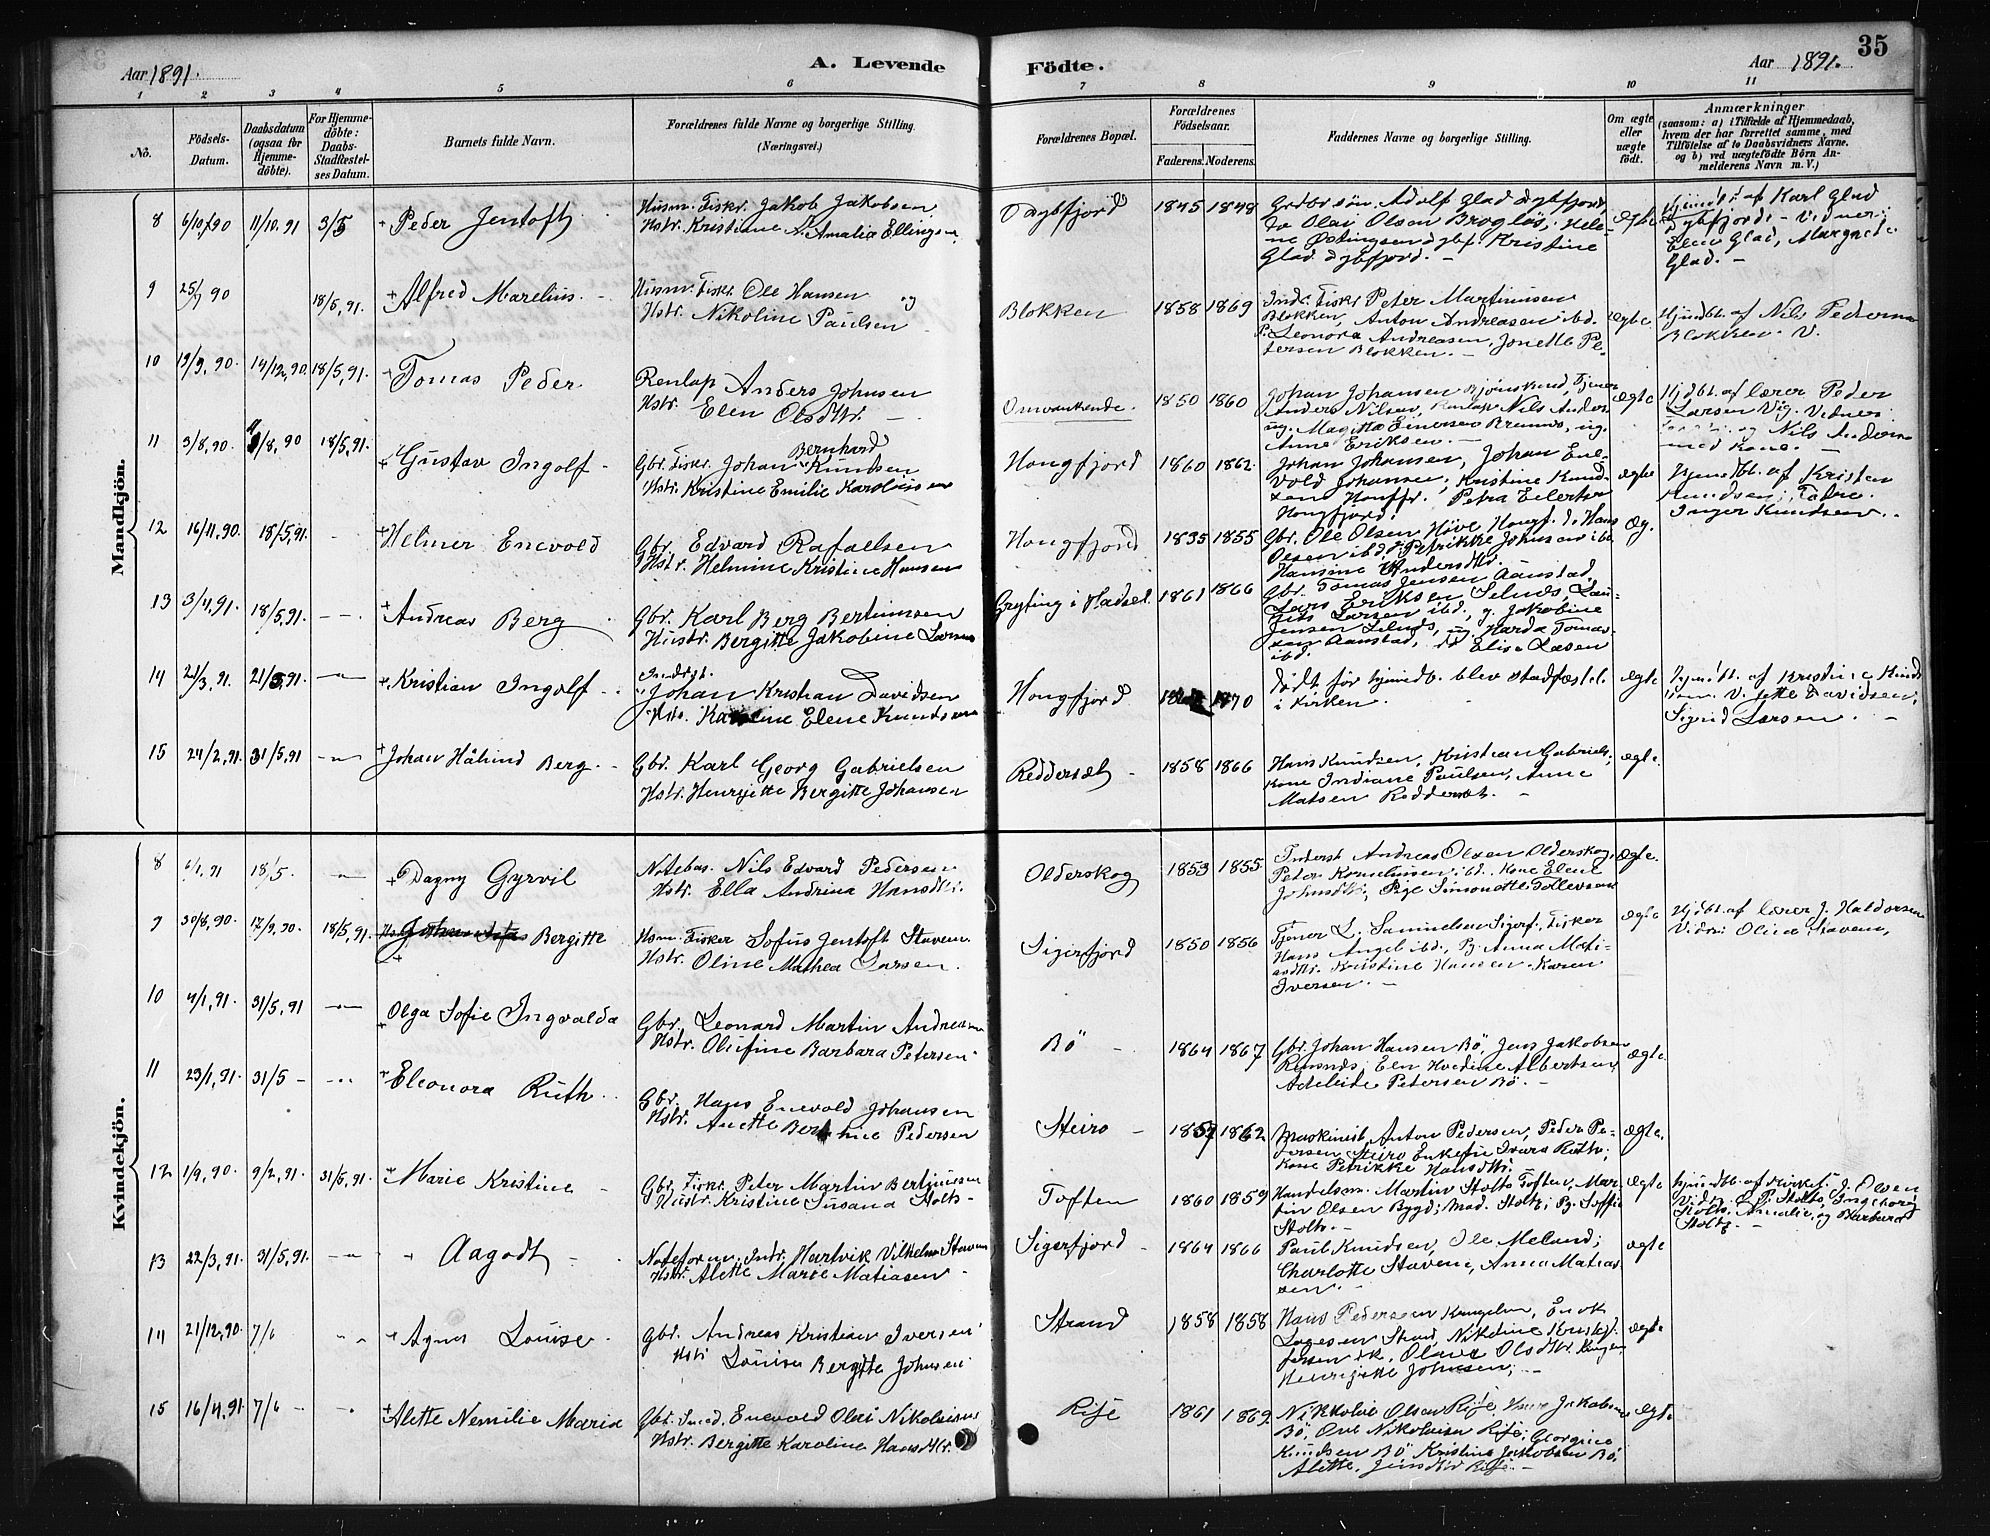 Aar 1891.
A. Levende
Födte.
Aar 1891.
35
1 2 3 4 5 6 7 8 9 10 11
No.
Födsels-Datum.
Daabsdatum (ogsaa for Hjemme-döbte).
For Hjemme-döbte: Daabs-Stadfæstel-ses Datum.
Barnets fulde Navn.
Forældrenes fulde Navne og borgerlige Stilling.
(Næringsvei.)
Forældrenes Bopæl.
Forældrenes Födselsaar.
Faderens. Moderens.
Faddernes Navne og borgerlige Stilling.
Om ægte eller uægte födt.
Anmærkninger
(saasom: a) i Tilfælde af Hjemmedaab,
hvem der har forrettet samme, med
Tilföielse af to Daabsvidners Navne.
og b) ved uægtefödte Börn An-
melderens Navn m. V.)
Mandkjön.
8 6/10 90 11/10.91 3/5 + Peder Jentoft
Husm. Fiskr. Jakob Jakobsen
Hstr. Kristiane N. Amalia Ellingsen
Dybfjord 1845 1848
Adolf Glad Dybfjord
Olai Olsen
Kristine
Glad Dybfjord. -
ægte
af Karl Glad
Dybfjord - Vidner:
Elen Glad, Margrete
Glad. -
9 25/7 90 18/5, 91. + Alfred Marelius. -
Husm. Fiskr. Ole Hansen og
Hstr. Nikoline Paulsen
Blokken 1858 1869
Indr. Fiskr Peter Martinusen
Blokken, Anton Andreasen ibd.
P. Leonora Andreasen, Jonette Pe-
tersen Blokken. -
ægte.
Hjmdbt. af Nils Pedersen
Blokken. V.
10 19/9, 90. 14/12, 90. 18/5, 91. + Tomas Peder
Renlap Anders Johnsen
Hstr. Elen Olsdttr. -
Omvankende. 1850 1860
Johan Johansen Bjørnskind, Tjener
Anders Nilsen, Renlap Nils Anders.
ug. Magitta Einersen ug.
Anne Eriksen. -
ægte
Hjdbt. af lærer Peder
Larsen Vig. Vidner
og Nils Andersen
med kone. -
11 3/8, 90. 11/8, 90 18/5, 91. + Gustav Ingolf -
Gbr. Fiskr. Johan Bernhard Knudsen
Hstr. Kristine Emilie Karoliussen
Hongfjord 1860 1862.
Johan Johansen, Johan Ene-
vold Johansen, Kristine Knud-
sen Petra Eilertsen
Hongfjord.
ægte
Hjemdbt. af Kristen
Knudsen;
Inger Knudsen.
12 16/11, 90. 18/5, 91. - + Helmer Enevold
Gbr. Edvard Rafaelsen
Hstr. Helmine Kristine Hansen
Hongfjord 1835 1855
Gbr. Ole Olsen Hongf. do Hans
Olsen ibd. Petrikke Johnsen ibd.
Hansine Andersdttr.
Æg.
13 3/4, 91. 18/5, 91. - - + Andreas Berg
Gbr. Karl Berg Bertinusen
Hustr. Bergitte Jakobine Larsen
Gryting i Hadsel. 1861 1866
Gbr. Tomas Jensen Aanstad,
Lars Eriksen Selnds,
Larsen ibd., g. Jakobine
Jensen Selnds, ug Harda Tomas-
sen Aanstad, Elise Larsen
ibd.
14 21/3, 91. 21/3, 91 + Kristian Ingolf -
Johan Kristian Davidsen
Hstr. Karoline Elene Knudsen
Hongfjord 1870
Født før hjmdb. blev stadfæstet
i kirken.
ægte
Hjmdbt. af Kristine Knud-
sen. V. Jette Davidsen,
Sigrid Larsen. -
15 24/2, 91. 31/5, 91 + Johan Håkind Berg. -
Gbr. Karl Georg Gabrielsen
Hstr. Henrijette Bergitte Johansen
Reddersæt - 1858 1866
Hans Knudsen, Kristian Gabriels.
kone Indiane Paulsen, Anne
Matsen Reddersæt. -
ægte.
Kvindekjön.
8 6/1, 91 18/5 + Dagny Gyrvil
Notebas. Nils Edvard Pedersen
Hstr. Ella Andrina Hansdttr.
Olderskog 1853 1855
Inderst Andreas Olsen Olderskog,
Peter Kornelinsen ibd. Kone Elene
Johnsdttr, Pige Simonette Tollevsen
ægte.
9 30/8, 90. 17/9, 90. 18/5, 91. Bergitte
Hsm. Fisker Sofus Jentoft Staven
Hstr. Oline Mathea Larsen.
Sigerfjord 1850 1856
Tjener L. Samuelsen Sigerf. Fisker
Hans Angel ibd., Pg. Anna Mati-
asdttr. Kristine Hansen Karen
Iversen. -
ægte
Hjdbt. af lærer J. Haldorsen
Vidn. Olina Staven,
10 4/1, 91. 31/5, 91 + Olga Sofie Ingvalda
Gbr. Leonard Martin Andreasen
Hstr. Olufine Barbara Petersen
Bö - 1864 1867
Gbr. Johan Hansen Bö, Jens Jakobsen
Elen Hvedine Albertsen,
Adeleide Petersen Bö. -
ægte.
11 23/1, 91. 31/5 - + Eleonora Ruth. -
Gbr. Hans Enevold Johansen
Hstr. Anette Berthine Pedersen
Steiro - 1857 1862
Maskinist Anton Pedersen, Peder Pe-
dersen Steiro Enkefru Ivara Ruth,
kone Petrikke Hansdttr.
ægte.
12 1/9, 90. 9/2, 91. 31/5, 91. + Marie Kristine -
Gbr. Fiskr. Peter Martin Bertinusen
Hustr. Kristine Susana Stolts -
Toften 1860 1859
Handelsm. Martin Stolts Toften, Mar-
tin Olsen Bygd; Mad. Stolts; Pg. Soffie
Stolts. -
ægte
Hjemdbt. af kirkes. J. Owen
Vidn. P. Stolts, Ingeborg
Stolts. Amalie og Barbara
Stolts. -
13 22/3, 91. 31/5, 91. + Aagodt -
Noteforem. Indr. Hartvik Vilhelm Staven
Hstr. Alette Marie Matiasen -
Sigerfjord - 1864 1866
Paul Knudsen, Ole Meland;
Charlotte Stavene, Anna Matias-
sen. -
ægte
14 21/12, 90. 7/6 + Agnes Louise -
Gbr. Andreas Kristian Iversen
Hstr Louise Bergitte Johnsen
Strand 1858 1858
Hans Pedersen Enok
Larsen Strand, Nikoline Kristof-
fersen Olava Olsdttr.
Henrijette Johnsen, -
ægte
15 16/4, 91 7/6 - + Alette Nemilie Maria
Gbr. Smed. Enevold Olai Nikolaisen
Hstr. Bergitte Karoline Hansdttr.
Rise 1861 1869
Nikkolai Olsen Rise, Jakobsen
Bö, Nikolaisen Rise, Georgine
Knudsen Bö Kristine Jakobsen Bö,
Alette Jensdttr Rise. -
ægte